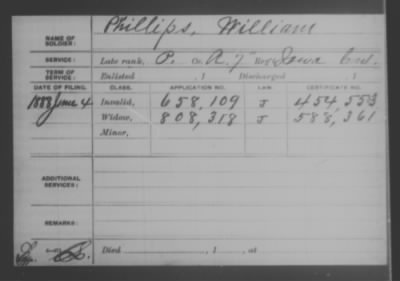 NAME OF SOLDIER: Phillips, William
SERVICE: Late rank, P. Co. A. 7" Reg Iowa Cav.
TERM OF SERVICE: Enlisted , 1 Discharged , 1
DATE OF FILING. CLASS. APPLICATION NO. LAW. CERTIFICATE NO.
1888 June 4 Invalid, 658,109 J 454,553
Widow, 808,318 J 588,361
Minor,
ADDITIONAL SERVICES:
REMARKS:
Died , 1 , at